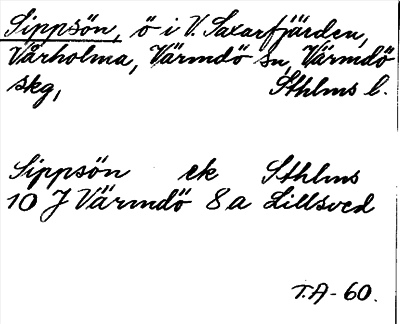 Sippsön, ö i V. Saxarfjärden,
Vårholma, Värmdö sn, Värmdö
skg, Sthlms l.
Sippsön ek Sthlms
10 J Värmdö 8a Lillsved
T.A-60.